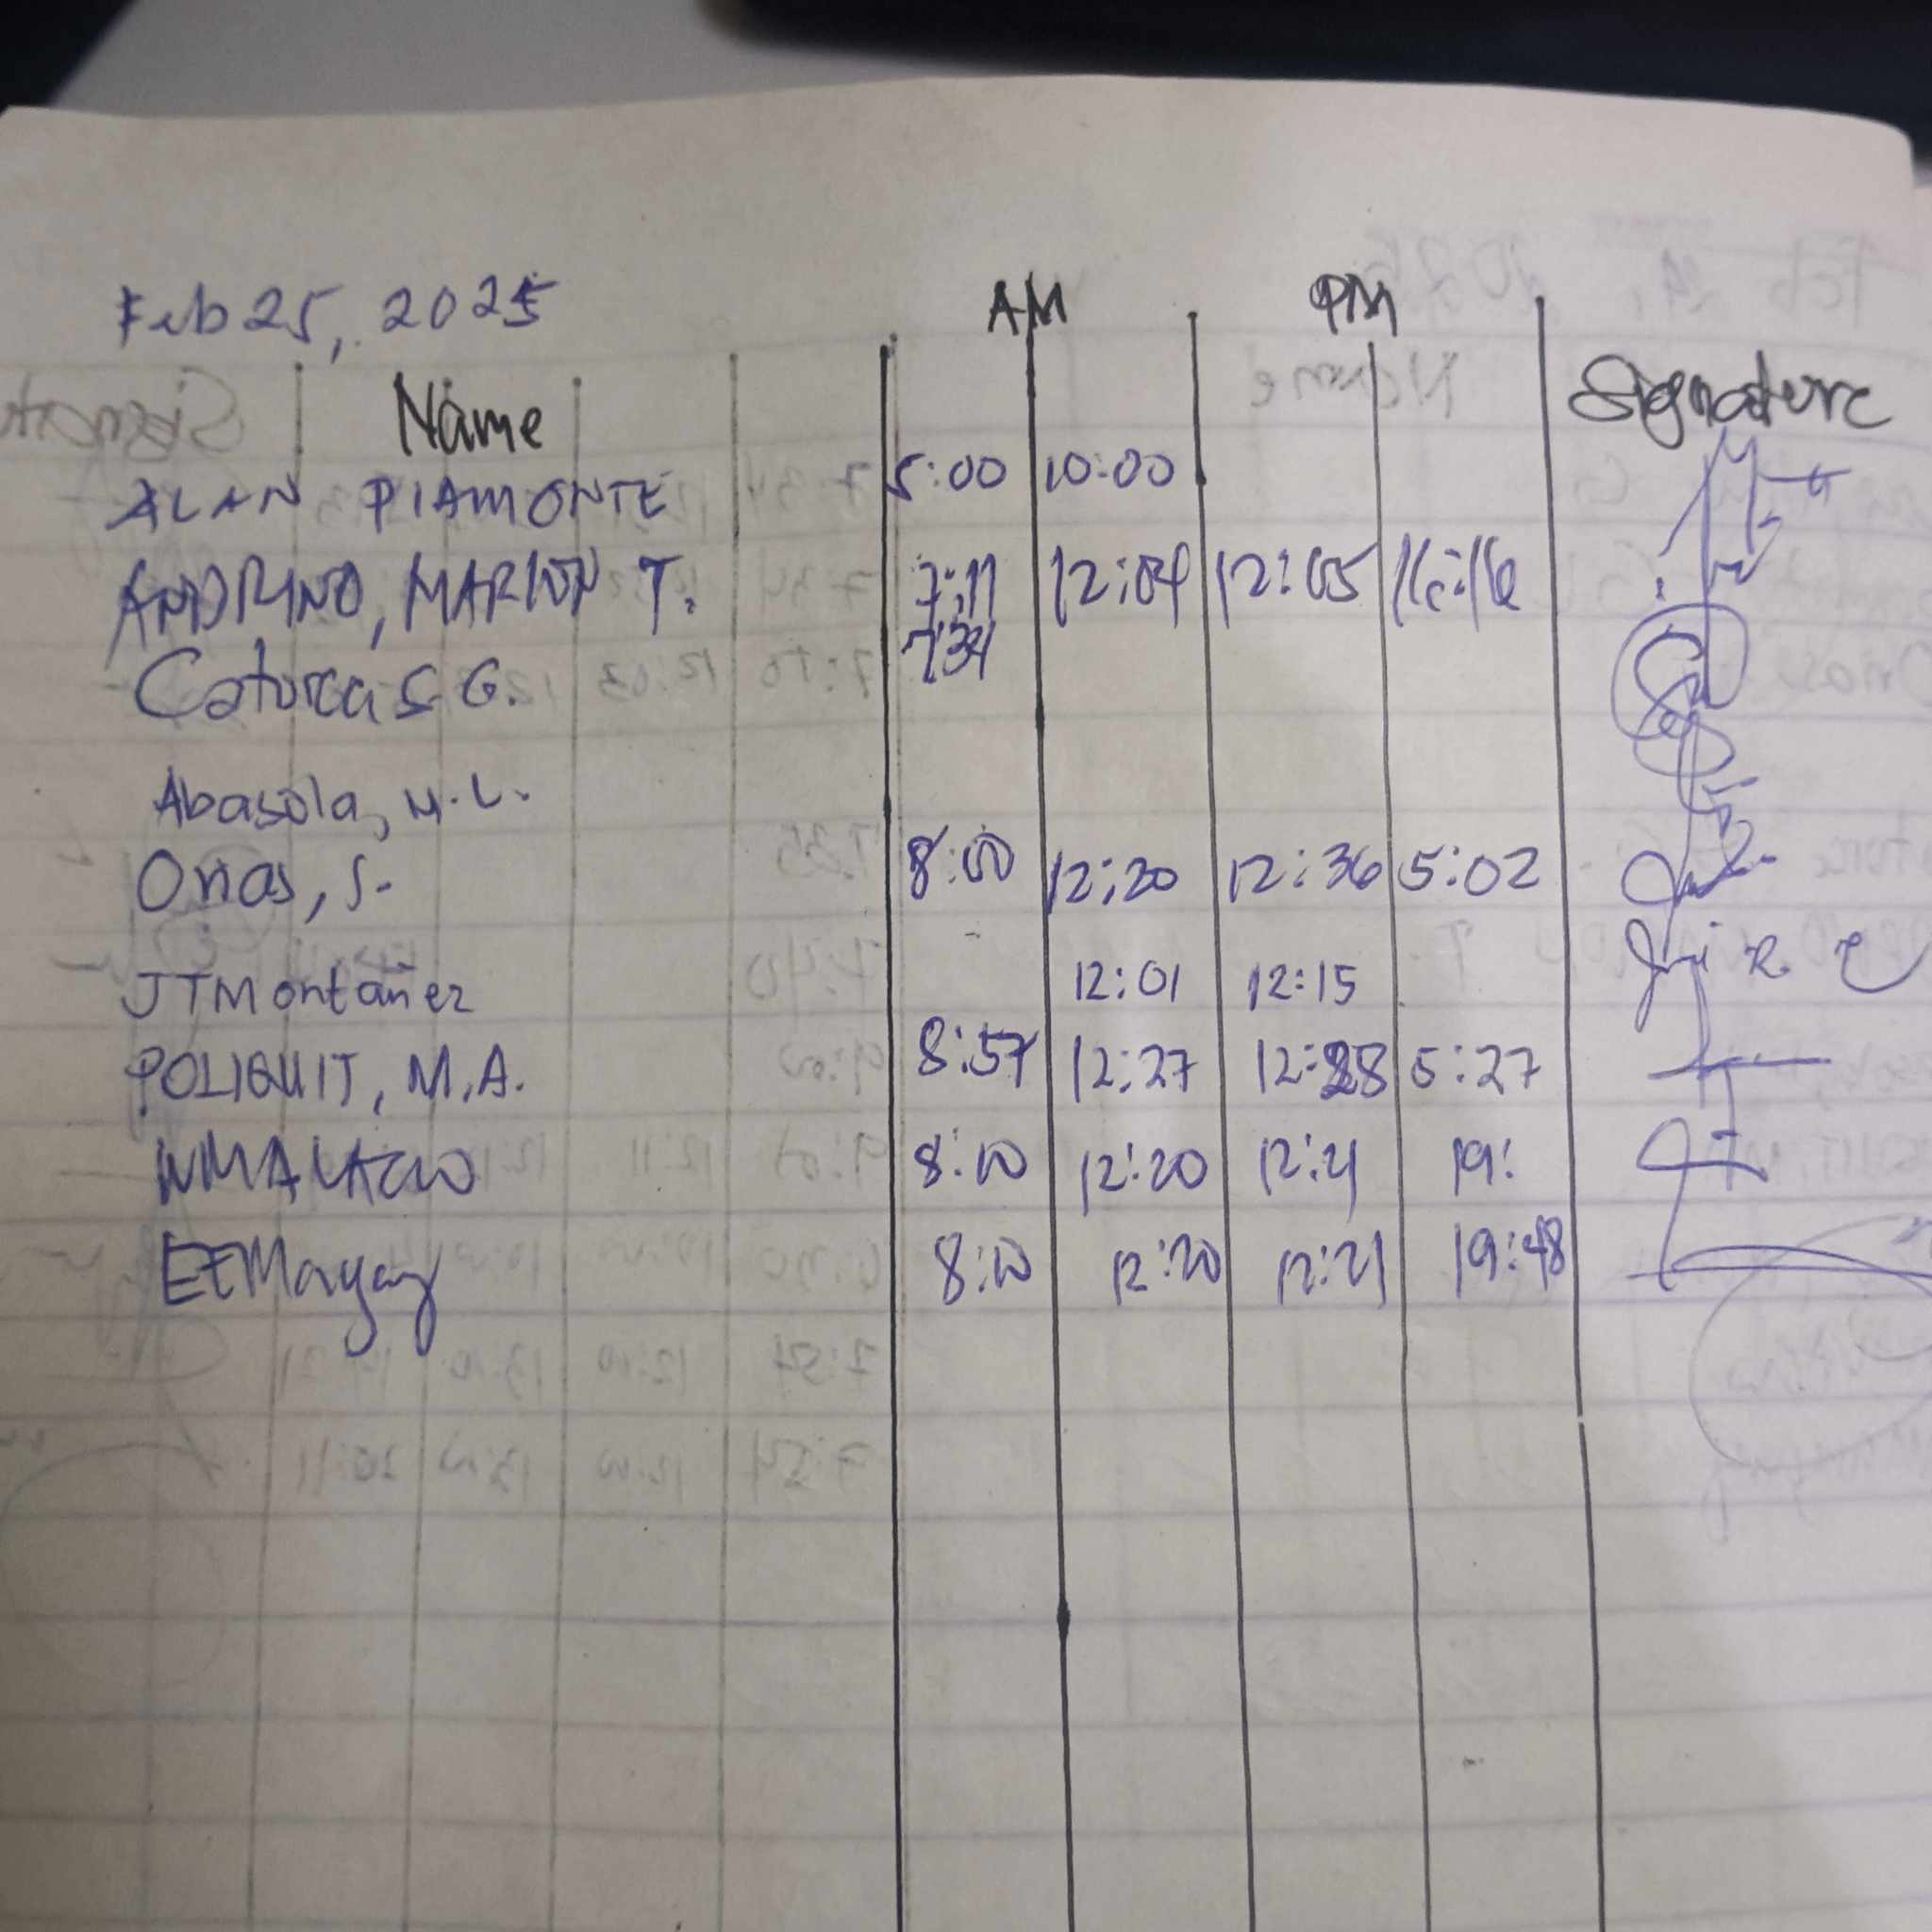 Feb 25, 2025 AM PM
Name Signature
ALAN PIAMONTE 5:00 10:00
ANDRINO, MARLON T. 7:11 12:04 12:05 16:16
Caturca S.G. 7:34
Abasola, M.L.
Orias, S. 8:00 12:20 12:36 5:02
JTMontañez 12:01 12:15
POLIQUIT, M.A. 8:57 12:27 12:28 5:27
8:10 12:20 12:21 19:
EEMagay 8:10 12:20 12:21 19:48